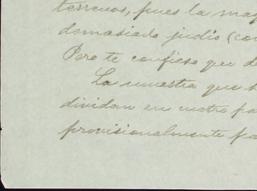 terrenos, pues la may
domasiado judío (con
Pero te confieso que d
La muestra que t
dividan en cuatro pa
provisionalmente pa